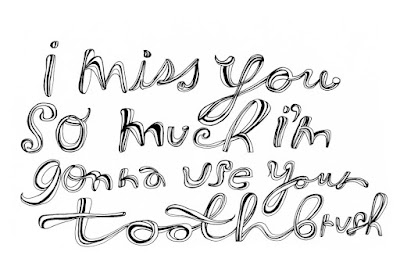 i miss you
so much i'm
gonna use your
toothbrush